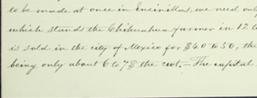 to be made at once in Encinillas, we need only
which stands the Chihuahua farmer in 12 to
is sold in the city of Mexico for $40 to 50, the
being only about 6 to 7$ the cwt. — The capital